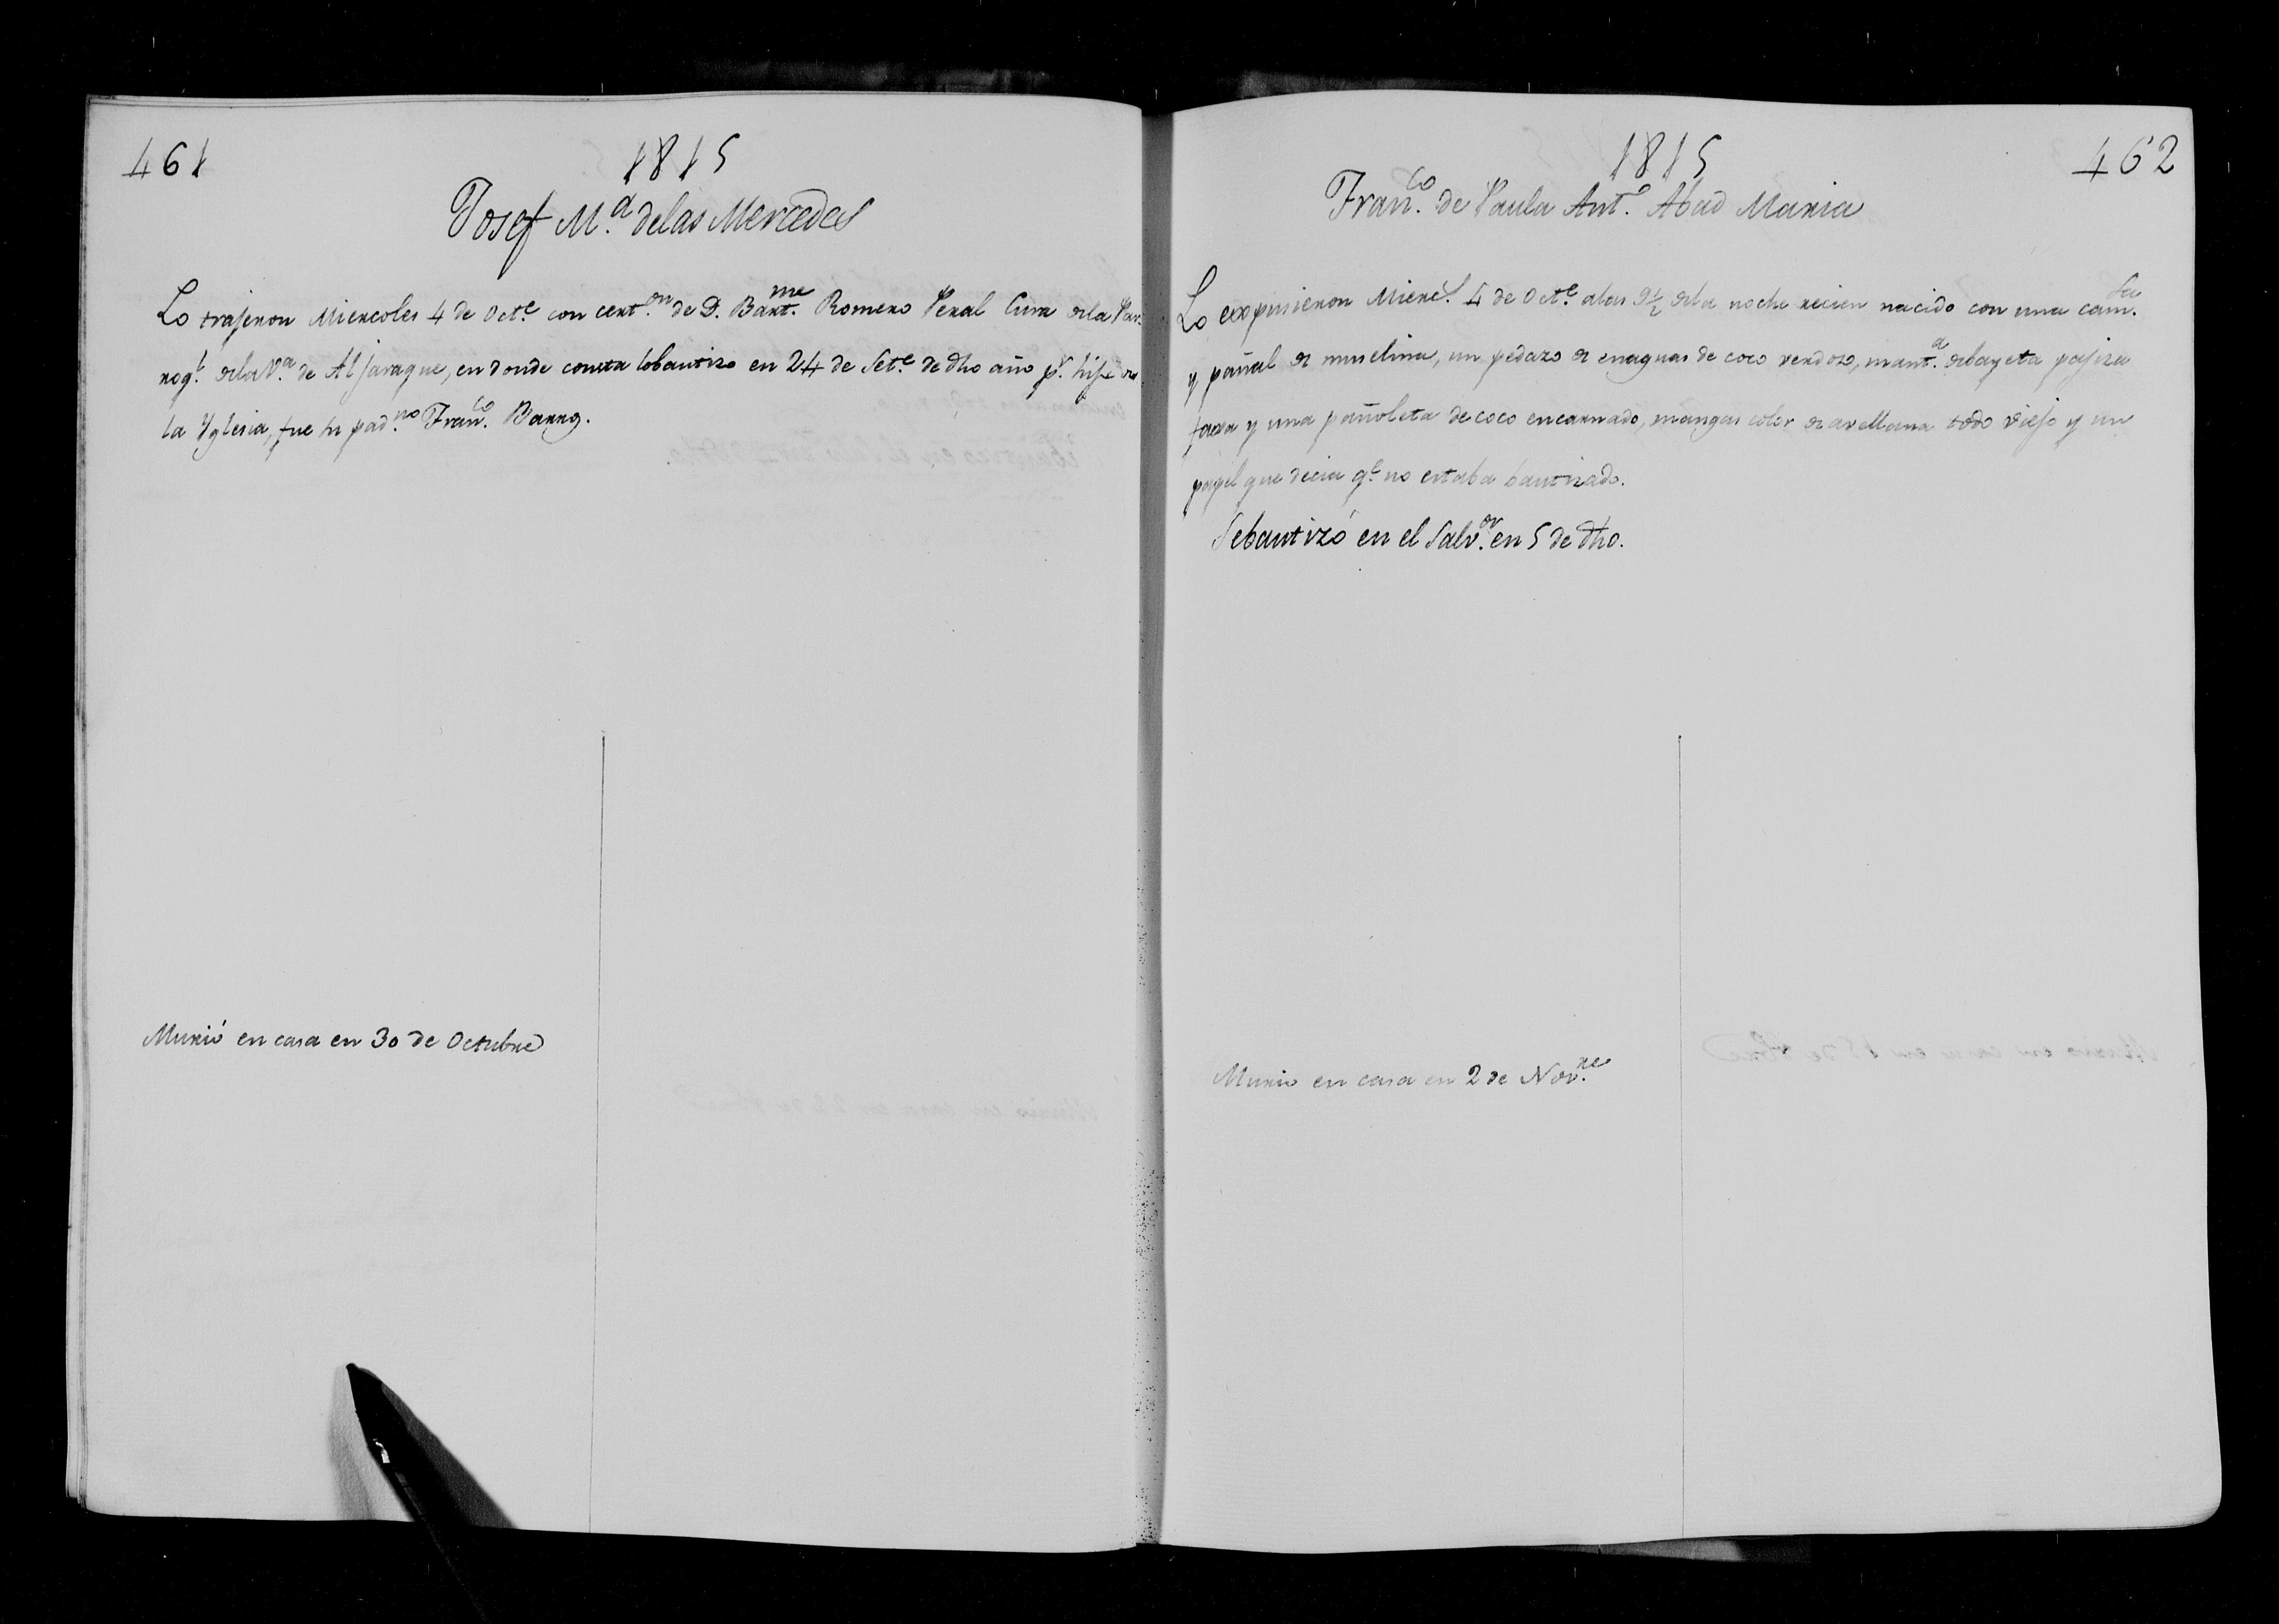 461
1815
Josef M.ª de las Mercedes
Lo trajeron Miercoles 4 de Oct.e con cert.on de D. Bart.me Romero Peral Cura de la Par-
roq.l de la V.a de Aljaraque, en donde consta lo bautizo en 24 de Set.e de dho año p.r hijo de
la Yglesia, fue su pad.no Fran.co Barro.
Murió en casa en 30 de Octubre
1815
462
Fran.co de Paula Ant.o Abad Maria
Lo expusieron Mierc.s 4 de Oct.e a las 9½ de la noche recien nacido con una cam.sa
y pañal de muselina, un pedazo de enaguas de coco verdoso, mant.a de bayeta pajiza
faxa y una pañoleta de coco encarnado, mangas color de avellana todo viejo y un
papel que decia q.e no estaba bautizado.
Se bautizó en el Salv.or en 5 de dho.
Murio en casa en 2 de Nov.re